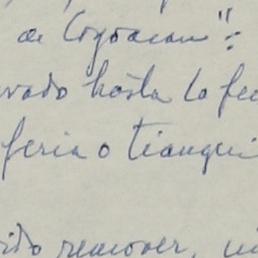 de Coyoacan":
vado hasta la fe
feria o tiangui
ido remover, ni